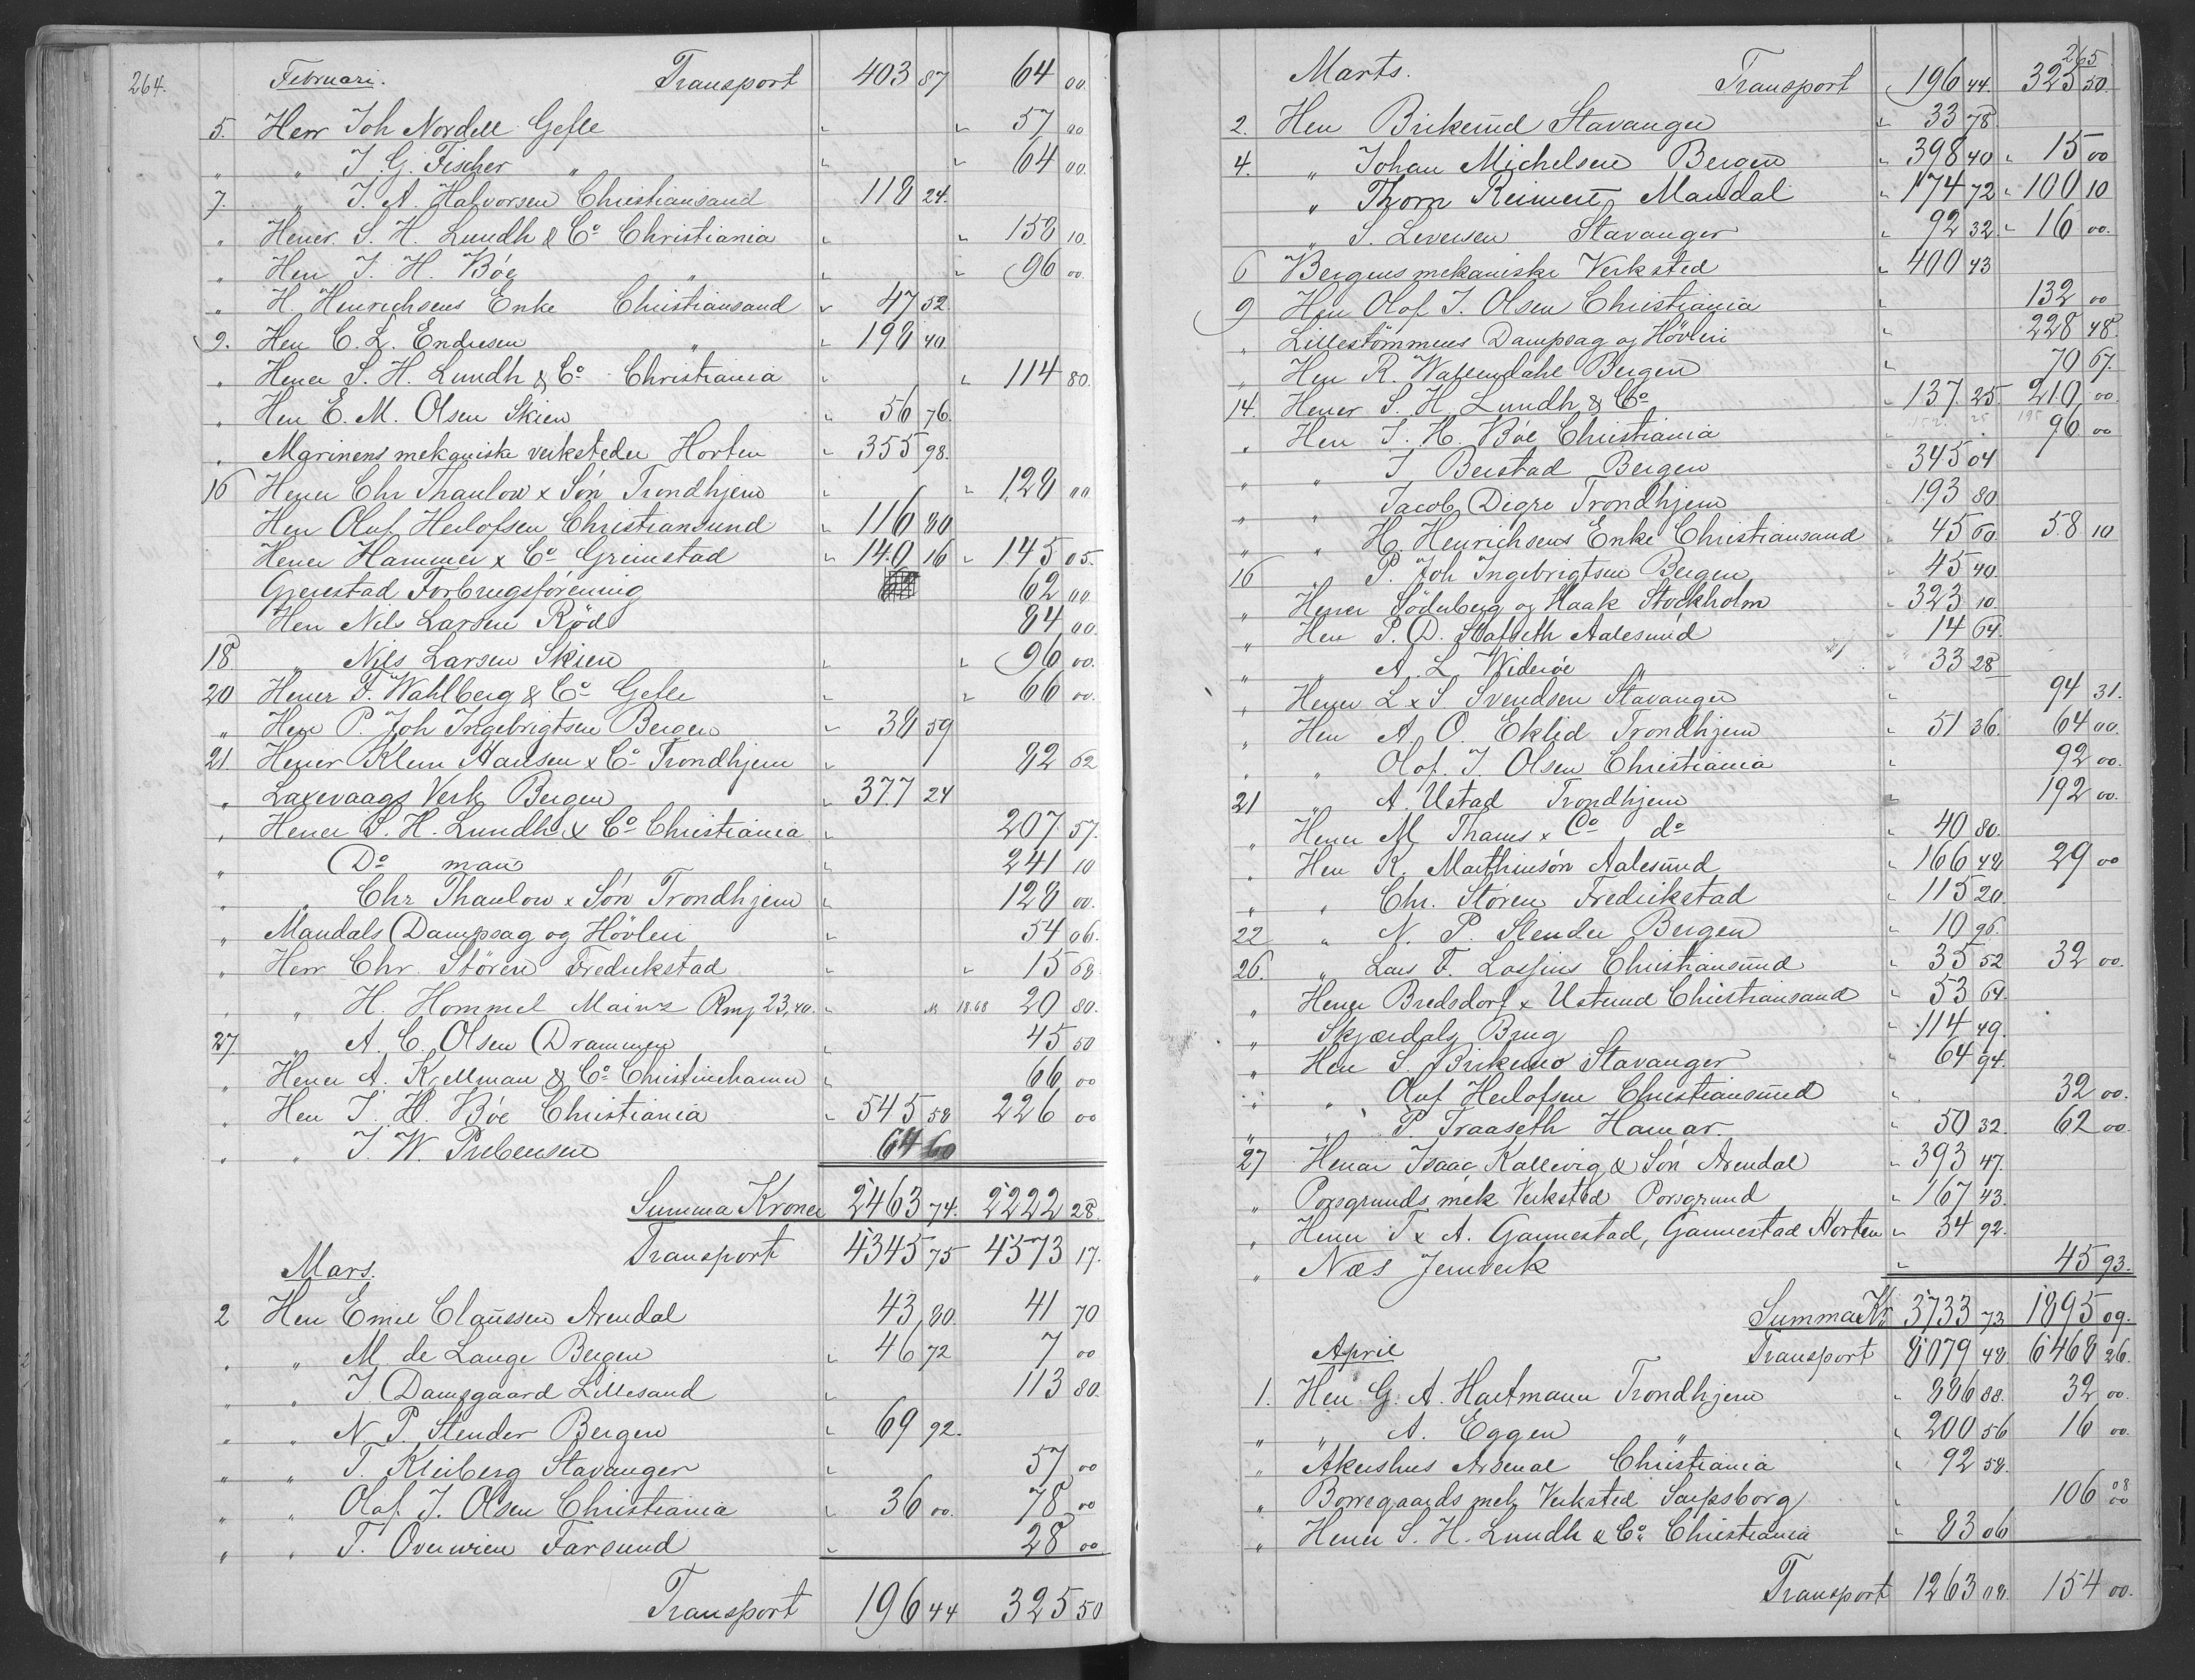 264.
Februari. Transport 403 87 64 00.
5. Herr Joh Nordell Gefle " " 57 00
" " J. G. Fischer " " " 64 00.
7. " J. A. Halvorsen Christiansand 118 24.
" Herrer S. H. Lundh & Co Christiania " " 150 10.
" Herr J. H. Böe " " " 96 00.
" H. Henrichsens Enke Christiansand " 47 52.
9. Herr C. L. Endresen " " 198 40.
" Herrer S. H. Lundh & Co Christiania " " 114 80.
" Herr E. M. Olsen Skien " 56 76.
" Marinens mekaniske verksteder Horten " 355 98.
16 Herrer Chr Thaulow x Sön Trondhjem " " 128 00
Herr Oluf Herlofsen Christiansund " 116 80
Herrer Hammer x Co Grimstad " 140 16 " 145 05.
Gjerestad Forbrugsförening 62 00.
Herr Nils Larsen Röd 84 00.
18 " Nils Larsen Skien " " 96 00.
20 Herrer F. Wahlberg & Co Gefle " " 66 00.
" Herr P. Joh Ingebrigtsen Bergen " 38 59
21. Herrer Klem Hansen x Co Trondhjem " 82 62
" Laxevaags Verk Bergen " 377 24
" Herrer S. H. Lundh & Co Christiania " 207 57.
" Do man " 241 10
" " Chr Thaulow x Sön Trondhjem " 128 00.
" Mandals Dampsag og Hövleri " 54 06.
" Herr Chr. Stören Fredrikstad " " 15 68
" " H. Hommel Mainz Rmj 23,40. " M 18.68 20 80.
27 " A. C. Olsen Drammen " 45 50
" Herrer A. Krellman & Co Christinehamn " 66 00
" Herr J. H. Böe Christiania " 545 58 226 00
" " J. W. Prebensen 64 60
Summa Kroner 2463 74. 2222 28.
Transport 4345 75 4573 17.
Mars.
2 Herr Emil Claussen Arendal 43 80. 41 70
" " M. de Lange Bergen " 46 72 7 00
" " J. Damsgaard Lillesand " 113 80.
" " N. P. Stender Bergen " 69 92.
" " T. Kleiberg Stavanger " 57 00
" " Olaf J. Olsen Christiania " 36 00. 78 00
" " T. Overwien Farsund " 28 00.
Transport 196 44 325 50
265
Marts. Transport 196 44. 325 50.
2. Herr Birkerud Stavanger " 33 78.
4. " Johan Michelsen Bergen " 398 40 " 15 00
" Thorn Reimert, Mandal " 174 72 " 100 10
" S. Leversen Stavanger " 92 32. " 16 00.
6 Bergens mekaniske Verksted " 400 43
9 Herr Olaf J. Olsen Christiania " 132 00
" Lilleströmmens Dampsag og Hövleri " 228 48.
" Herr R. Wallendahl Bergen " 70 67.
14. Herrer S. H. Lundh & Co " 137 25 210 00.
" Herr J. H. Böe Christiania 96 00
" " J Beistad Bergen " 345 04
" " Jacob Digre Trondhjem " 193 80
" " H. Henrichsens Enke Christiansand " 45 60. 58 10
16 " P. Joh Ingebrigtsen Bergen " 45 40.
" Herrer Söderberg og Haak Stockholm " 323 10.
" Herr P. D. Hafseth Aalesund " 14 64.
" " A. L Wideröe " 33 28
" Herrer L x S Svendsen Stavanger " 94 31.
" Herr A. O. Eklid Trondhjem " 51 36. 64 00.
" " Olaf. J. Olsen Christiania " 92 00.
21 " A. Ustad Trondhjem " 192 00.
" Herrer M Thams x Co do " 40 80.
" Herr K. Marthinson Aalesund " 166 48 29 00
" " Chr. Stören Fredrikstad " 115 20.
22 " N. P. Stender Bergen " 10 96.
26. " Lars F. Lossius Christiansund " 35 52 32 00.
" Herrer Bredsdorf x Ustrud Christiansand " 53 64.
" Skjærdals Brug " 114 49.
" Herr S. Birkemo Stavanger " 64 94.
" " Oluf Herlofsen Christiansund " 32 00.
" " P. Traaseth Hamar. " 50 32. 62 00.
27 Herrer Isaac Kallevig & Sön Arendal " 393 47.
" Porsgrunds mek Verksted Porsgrund " 167 43.
" Herrer T x A. Gannestad, Gannestad Horten " 34 92.
" Næs Jernverk " 45 93.
Summa Kr 3733 73 1895 09.
April Transport 8079 48 6468 26.
1. Herr G. A. Hartmann Trondhjem " 886 88. 32 00.
" " A. Eggen " " 200 56 16 00.
" Akershus Arsenal Christiania " 92 58.
" Borregaards mek Verksted Sarpsborg " 106 08 00
" Herrer S. H. Lundh & Co Christiania " 83 06
Transport 1263 08. 154 00.